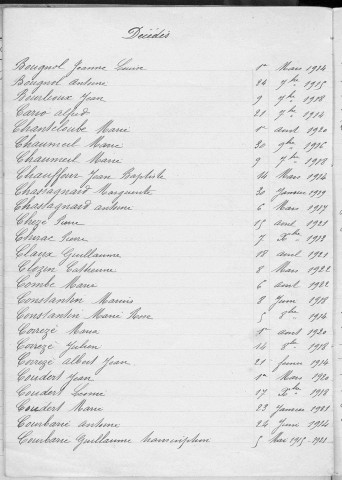 Décédés
Bougnol Jeanne Louise 1er Mars 1914
Bougnol Antoine 24 9bre 1915
Bourleoux Jean 9 9bre 1918
Cario alfred 21 9bre 1914
Chanteloube Marie 1er avril 1920
Chaumeil Marie 20 9bre 1916
Chaumeil Marie 9 7bre 1918
Chauffour Jean Baptiste 14 Mars 1914
Chassagnard Marguerite 20 Janvier 1919
Chassagnard antoine 6 Mars 1917
Chezé Pierre 15 avril 1921
Chirac Pierre 7 Xbre 1913
Claux Guillaume 18 avril 1921
Clozin Catherine 8 Mars 1922
Combe Marie 6 avril 1922
Constantin Marius 8 Juin 1918
Constantin Marie Rose 5 8bre 1914
Correzé Maria 1er avril 1920
Correzé Julien 14 8bre 1918
Correzé albert Jean 21 février 1914
Coudert Jean 1er Mars 1920
Coudert Léonie 17 Xbre 1918
Coudert Marie 23 Janvier 1921
Courbarie antoine 24 Juin 1914
Courbarie Guillaume transcription 5 Mai 1915-1921